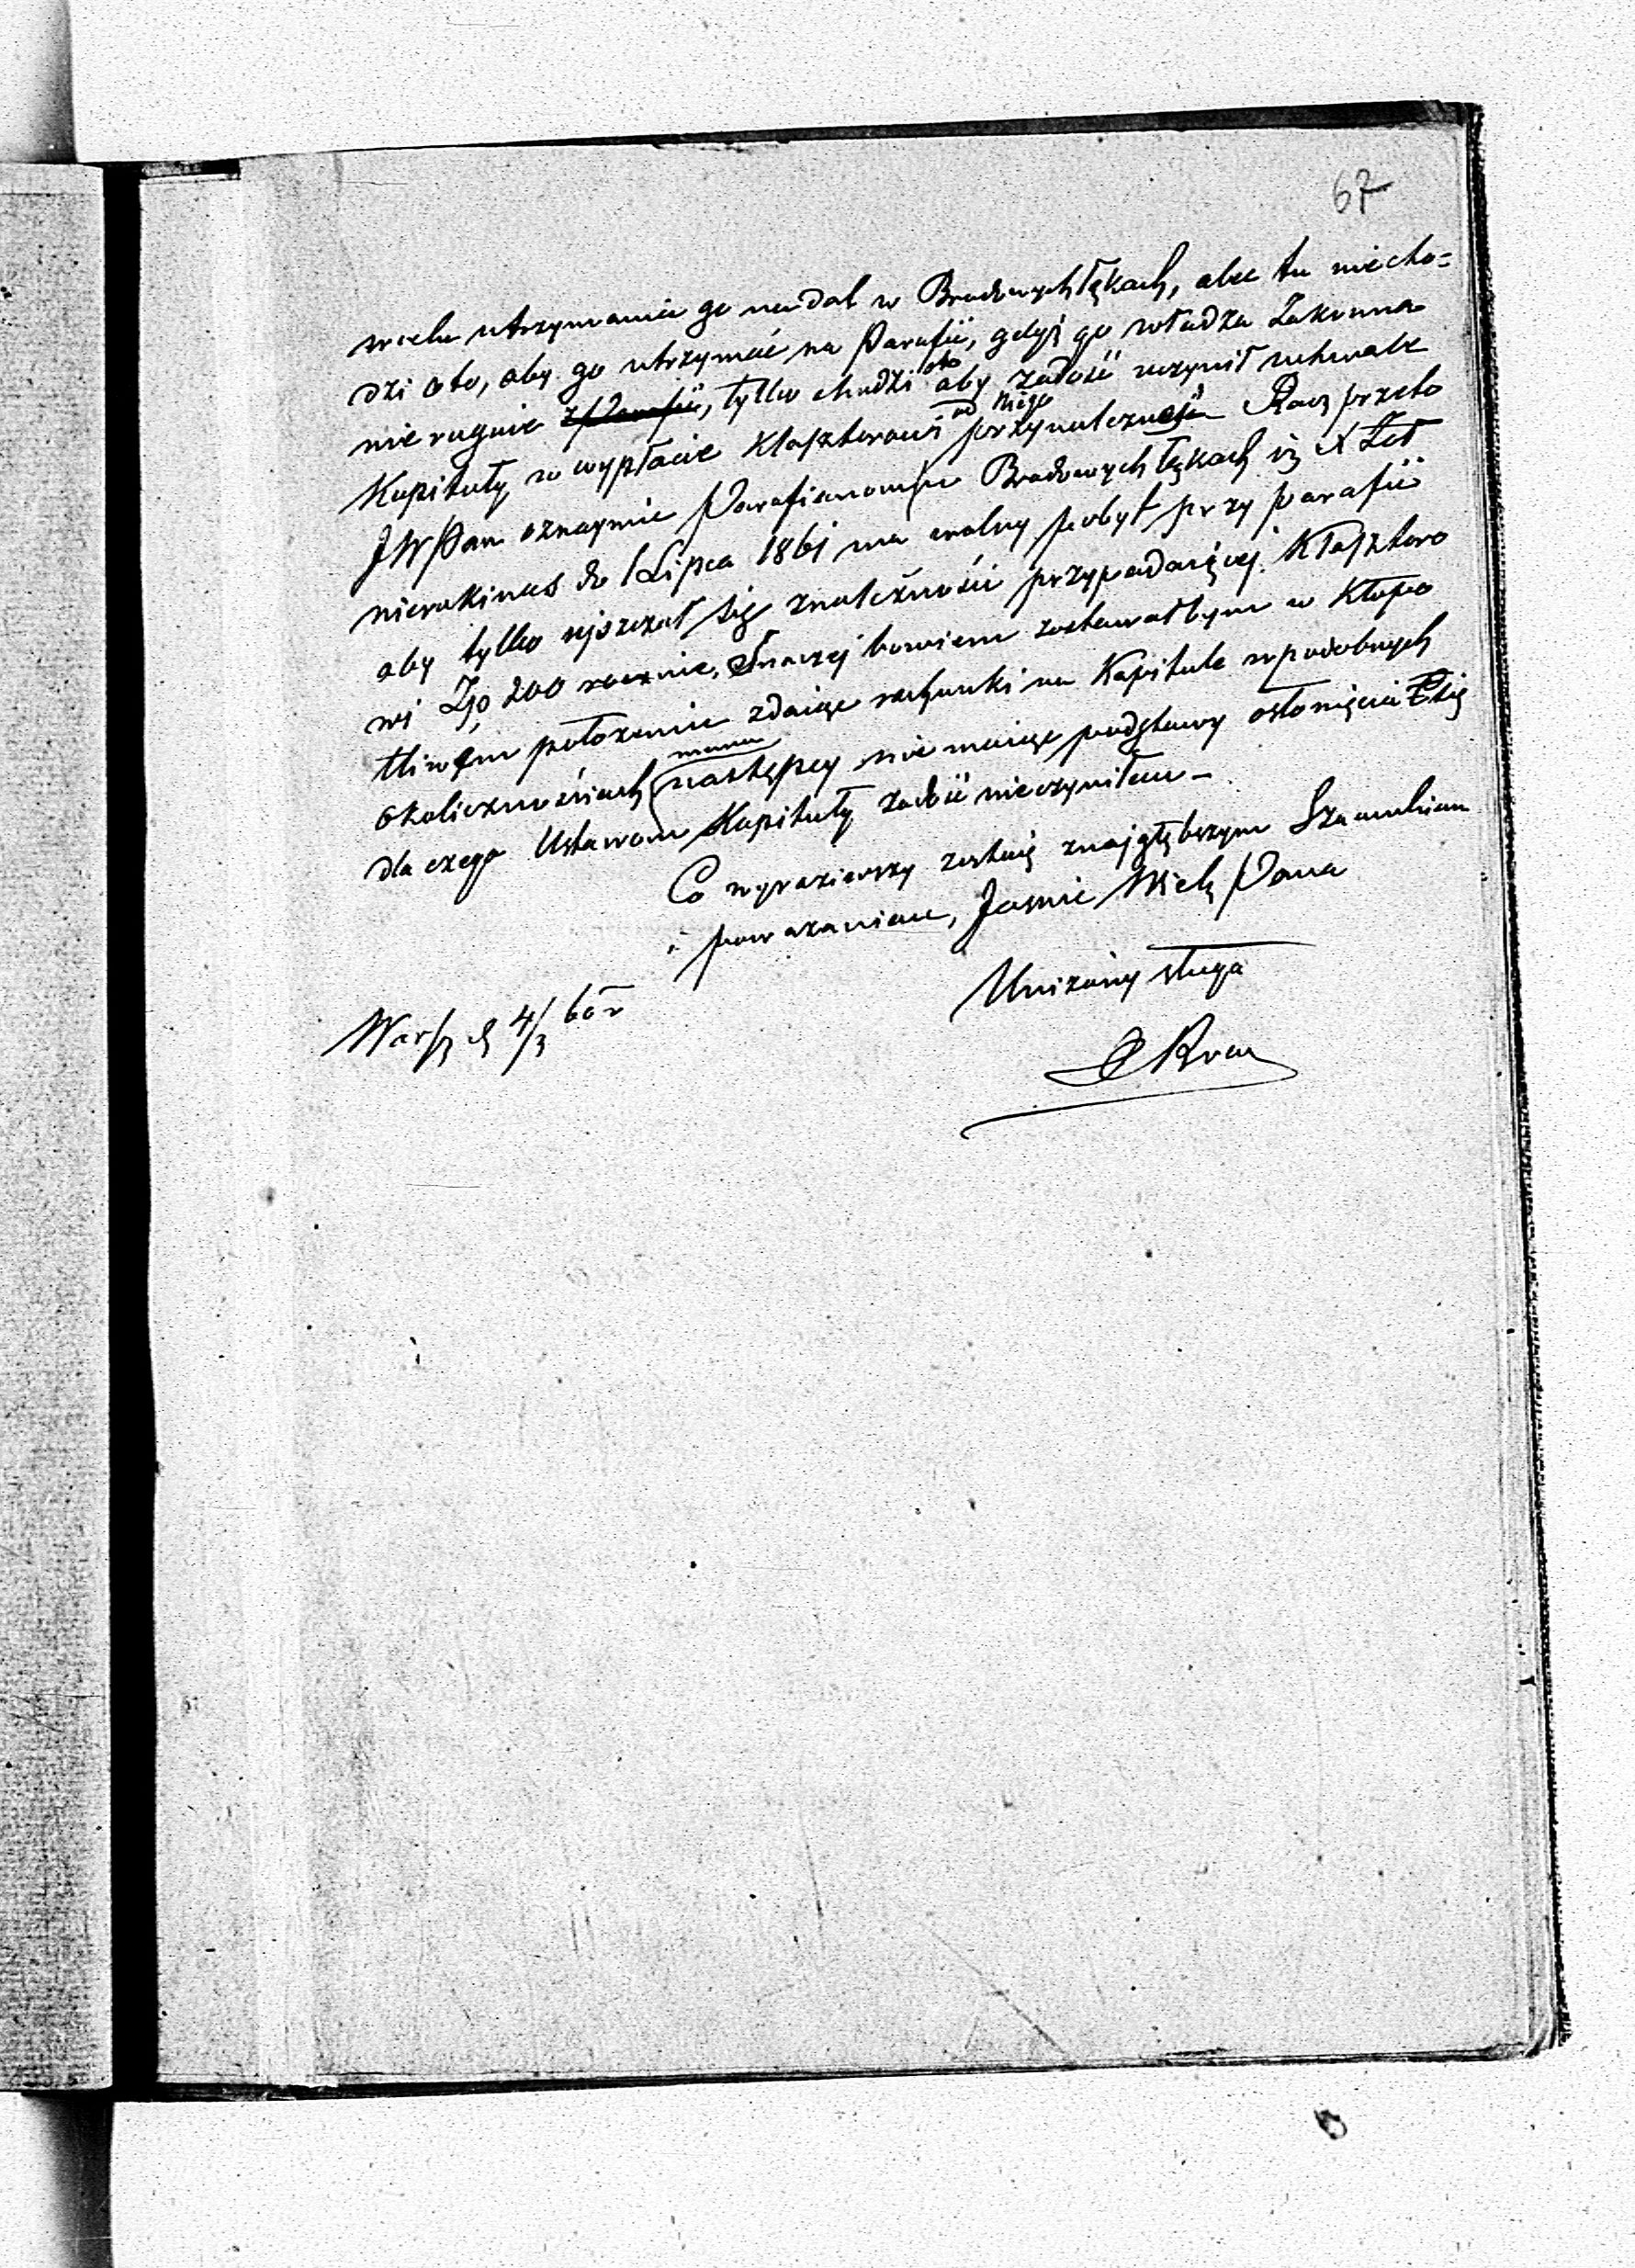 67
w celu utrzymania go nadal w Brodowych łąkach, alec tu niecho=
dzi oto, aby go utrzymać na Parafii, gdyż go władza Zakonna
nie ruguie z Parafii, tylko chodzi oto aby zadość uczynił uchwale
Kapituły w wypłacie Klasztorowi od niego przynależność Racz przeto
JWPan oznaymić Parafianom w Brodowych łąkach iż X
do 1 Lipca 1861 ma wolny pobyt przy parafii
aby tylko się znależności przypadaiącej Klasztoro
wi Złp 200 rocznie, Inaczej bowiem zostawałbym w Kłopo
tliwem położeniu zdaiąc rachunki na Kapitule w podobnych
okolicznościach następcy nie maiąc podstawy się
dla czego Ustawom Kapituły zadość nie czyniłem –
Co wyraziwszy zostaię z najgłębszym Szacunkiem
i poważaniem, Jaśnie Wielg Pana
Uniżony sługa
Warsz d 4/3 60 r